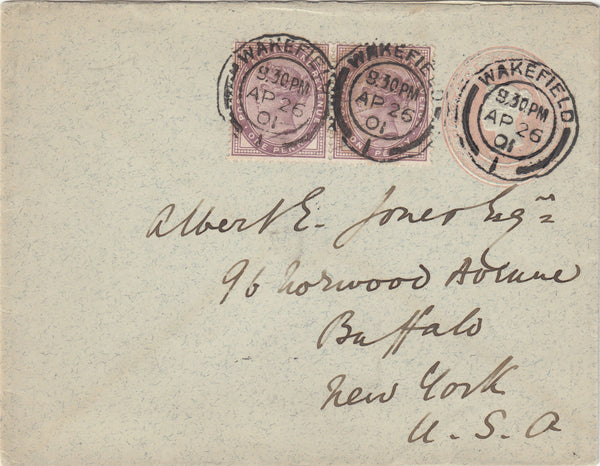 WAKEFIELD
9.30PM
AP 26
01
1
WAKEFIELD
9.30PM
AP 26
01
1
WAKEFIELD
9.30PM
AP 26
01
1
REVENUE
ONE PE
Albert E. Jones Esqre
96 Norwood Avenue
Buffalo
New York
U. S. A